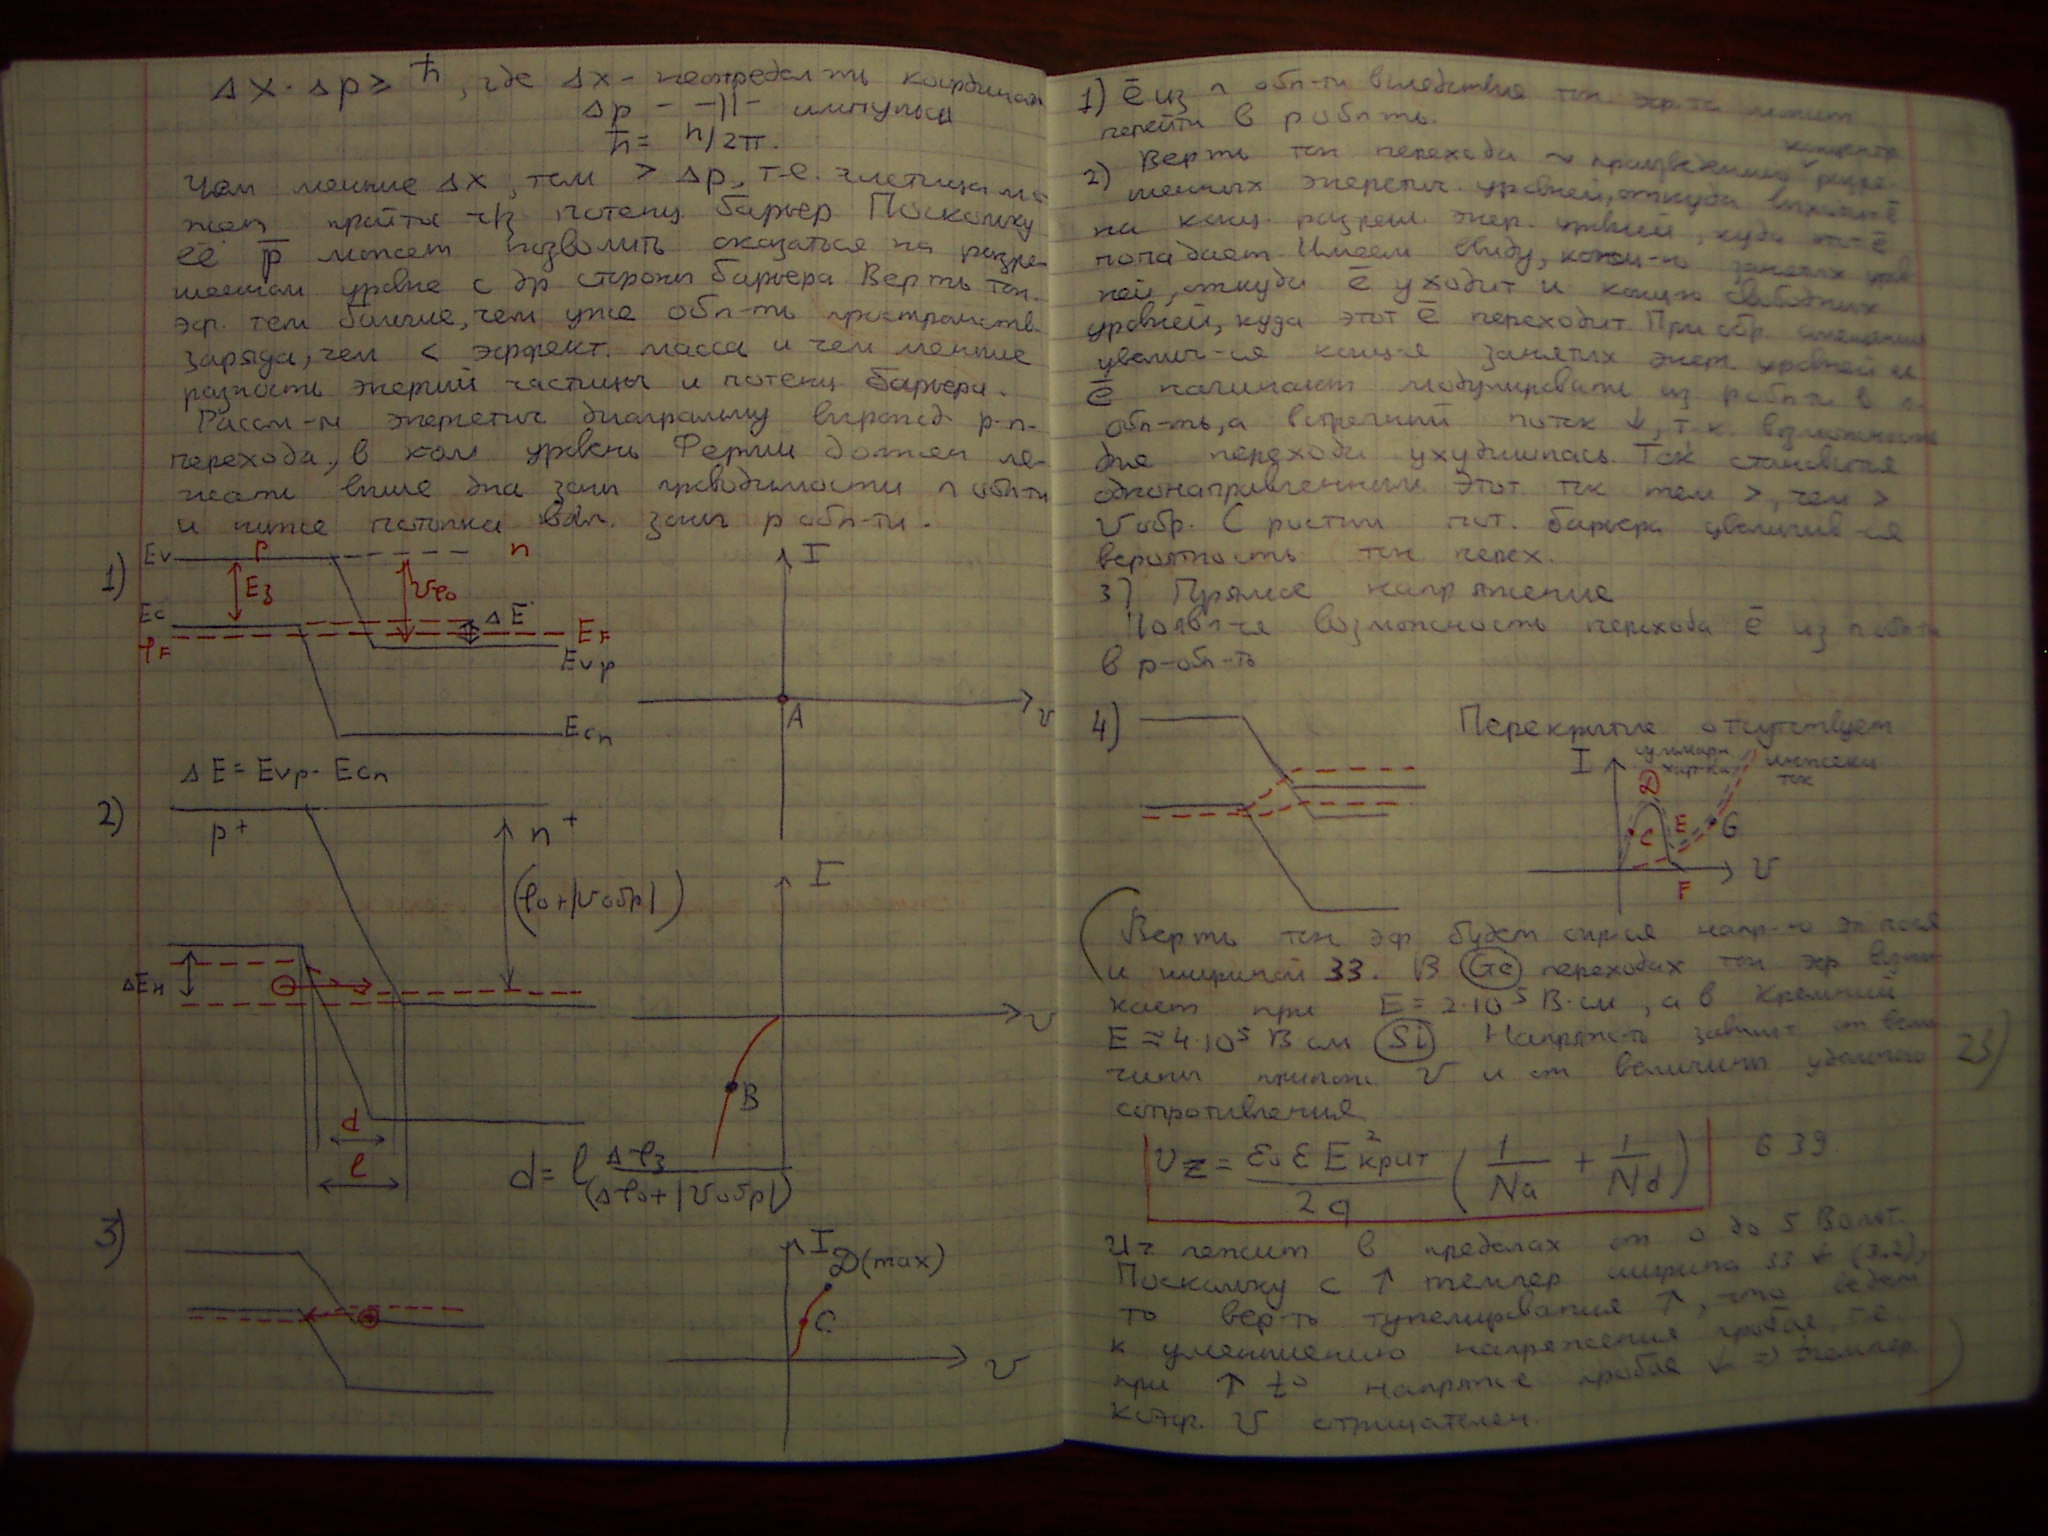 Δx · Δp ≥ ħ, где Δx - неопредел-ть координат
Δp - -||- импульса
ħ = h/2π.
Чем меньше Δx, тем > Δp, т.е. частица мо-
жет пройти ч/з потенц барьер Поскольку
её p̅ может позволить оказаться на разре-
шенном уровне с др стороны барьера Вер-ть тун.
эф. тем больше, чем уже обл-ть пространств.
заряда, чем < эффект. масса и чем меньше
разность энергий частицы и потенц барьера.
Рассм-м энергетич диаграмму вырожд p-n-
перехода, в ком уровень Ферми должен ле-
жать выше дна зоны проводимости n обл-ти
и ниже потолка вал. зоны p обл-ти.
1)
Ev p n
Eз
φ0
Ec
ΔE
φF
EF
Evp
Ecn
I
A
V
ΔE = Evp - Ecn
2)
p+ n+
(φ0+|Vобр|)
ΔEн
d
l
I
V
B
d = l Δφз / (Δφ0+|Vобр|)
3)
I
D(max)
C
V
1) ē из n обл-ти вследствие тун эф-та может
перейти в p обл-ть.
2) Вер-ть тун перехода ~ произведению концентр
разре-
шенных энергетич. уровней, откуда ē
на конц. разреш энер. уровней, куда этот ē
попадает. Имеем ввиду, конц-ю занятых уров
ней, откуда ē уходит и конц-ю свободных
уровней, куда этот ē переходит. При обр. смещении
увелич-ся конц-я занятых энерг уровней и
ē начинают из p обл-ти в n
обл-ть, а встречный поток ↓, т.к. возможность
для перехода ухудшилась. Ток становится
однонаправленным. Этот ток тем >, чем >
Vобр. С ростом пот. барьера увеличив-ся
вероятность тун перех.
3) Прямое напряжение
Появл-ся возможность перехода ē из n обл-ти
в p-обл-ть
4)
Перекрытие отсутствует
I
суммарн
хар-ка
инжекц
ток
D
C
E
G
F
V
(Вер-ть тун эф будет опр-ся напр-ю эл поля
и шириной ЗЗ. В (Ge) переходах тун эф возни
кает при E = 2·10⁵ В·см, а в Кремний
E ≈ 4·10⁵ В см (Si) Напряж-е зависит от вели
чины прилож V и от величины удельного
сопротивления
23)
Vz = ε0 ε E²крит / 2q (1/Na + 1/Nd)
639
Uz лежит в пределах от 0 до 5 Вольт.
Поскольку с ↑ темпер ширина ЗЗ ↓ (3.2),
то вер-ть туннелирования ↑, что ведет
к уменьшению напряжения пробоя, т.е.
при ↑ t° напряж-е пробоя ↓ => темпер
коэф. V отрицателен.)